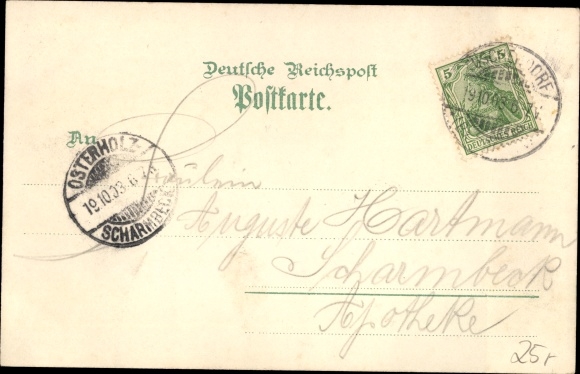 Deutsche Reichspost
Postkarte.
5
19.10.03.6
An
OSTERHOLZ-
19.10.03.6
SCHARMBECK
Fräulein
Auguste Hartmann
Scharmbeck
Apotheke
25,-